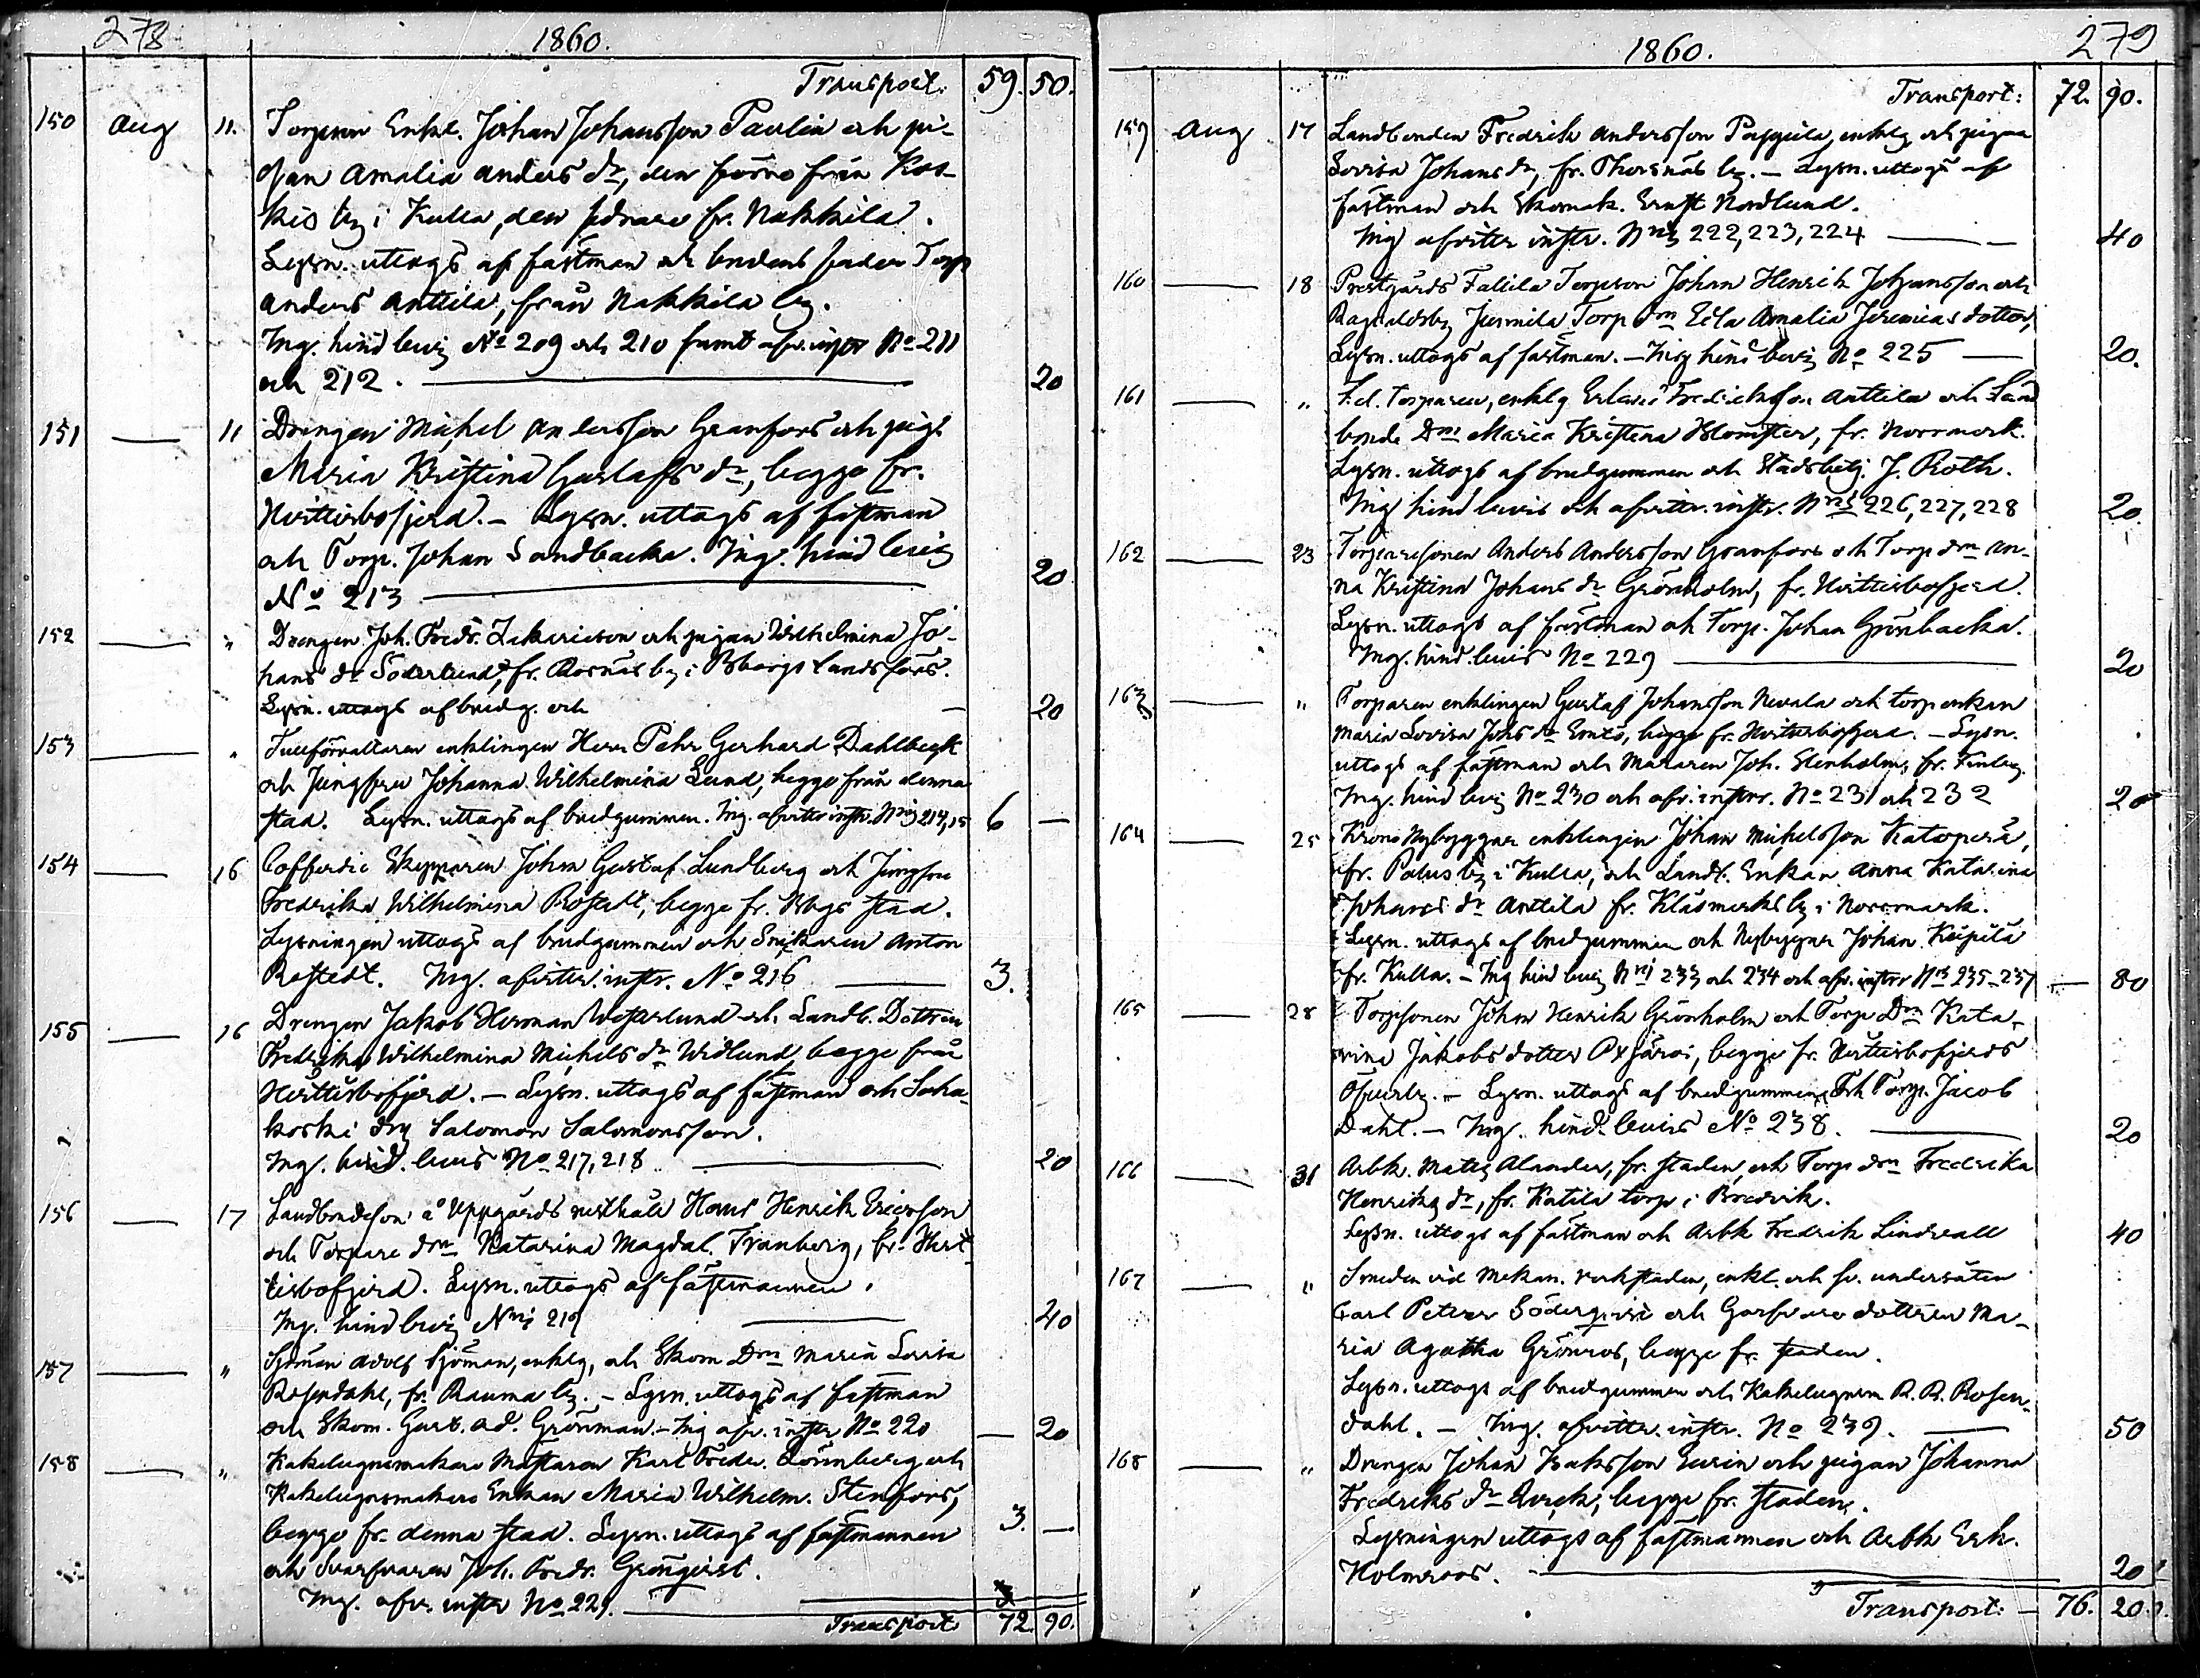 278
1860.
Transport. 59. 50.
150 Aug 11. Torparen Enkl. Johan Johansson Paulin och pi-
gan Amalia Anders dr, den förre från Kos-
kis by i Kulla, den sednare fr. Nakkila.
Lysn. uttogs af fästman och brudens fader Torp
Anders Anttila, från Nakkila by.
Ing. hind bevis No 209 och 210 samt afv. instr No 211
och 212. 20
151 11 Drengen Michel Andersson Granfors och pig.
Maria Kristina Gustafs dr, begge fr.
Hvittisbofjerd. - Lysn. uttogs af fästman
och Torp. Johan Sandbacka. Ing. hind bevis
No 213 20
152 " Drengen Joh. Fredr. Zakarison och pigan Wilhelmina Jo-
hans dr Söderlund, fr. Rosnäs by i Bborgs landsförs.
Lysn. uttogs af brudg. och 20
153 " Tullförvaltaren enklingen Herr Pehr Gerhard Dahlbeck
och Jungfru Johanna Wilhelmina Lund, begge från denna
stad. Lysn. uttogs af brudgummen. Ing. afvittr. instr. Nris 214, 15 6 -
154 16 Cofferdie Skepparen Johan Gustaf Lundberg och Jungfru
Fredrika Wilhelmina Rostedt, begge fr. Bbgs stad.
Lysningen uttogs af brudgummen och Snikaren Anton
Rostedt. Ing. afvittr. instr. No 216 3.
155 16 Drengen Jakob Herman Westerlund och Landb. Dottren
Fredrika Wilhelmina Michels dr Widlund, begge från
Hvittisbofjerd. - Lysn. uttogs af fästman och Saha-
koski drg Salomon Salomonsson.
Ing. hind. bevis No 217, 218 20
156 17 Landbondeson å Uppgårds rusthåll Hans Henrik Ericsson
och Torpare drn Katarina Magdal. Tranberg, fr. Hvit-
tisbofjerd. Lysn. uttogs af fästmannen.
Ing. hind bevis Nri 219 40
157 " Sjöman Adolf Sjöman, enklg, och Skom Drn Maria Lovisa
Rosendahl, fr. Rauma by. - Lysn. uttogs af fästman
och Skom. Gust. Ad. Grönman. - Ing afv. instr No 220 - 20
158 " Kakelugnsmakare Mästaren Karl Fredr. Lönnberg och
Kakelugnsmakare Enkan Maria Wilhelm. Stenfors,
begge fr. denna stad. Lysn. uttogs af fästmannen 3. -
och Svarfvaren Joh. Fredr. Grönqvist.
Ing. afv. instr No 221.
Transport 72. 90.
279
1860.
Transport: 72. 90.
159 Aug 17 Landbonden Fredrik Andersson enklg och pigan
Lovisa Johans dr, fr. Thorsnäs by. - Lysn. uttogs af
fästman och Skomak. Ernst Nordlund.
Ing afvittr instr. Nris 222, 223, 224 40
160 18 Prestgårds Fallila Torpson Johan Henrik Johansson och
Ragvaldsby Jusmila Torp drn Edla Amalia Jeremias dotter,
Lysn. uttogs af fästman. - Ing hind bevis No 225 20.
161 " F.d. Torparen, enklg Erland Fredricksson Anttila och Land
bonde Drn Maria Kristina Blomster, fr. Norrmark.
Lysn. uttogs af brudgummen och Stadsbetj. J. Roth.
Ing hind bevis och afvittr. instr. Nris 226, 227, 228 20.
162 23 Torparesonen Anders Andersson Granfors och Torp drn An-
na Kristina Johans dr Grönholm, fr. Hvittisbofjerd.
Lysn. uttogs af fästman och Torp. Johan Grönbacka.
Ing. hind. bevis No 229 20
163 " Torparen enklingen Gustaf Johansson Nevala och torp enkan
Maria Lovisa Johs dr begge fr. Hvittisbofjerd. - Lysn.
uttogs af fästman och Målaren Joh. Stenholm, fr. Finby.
Ing. hind bevis No 230 och afv. instr. No 231 och 232 20
164 25 Krono Nybyggar enklingen Johan Michelsson
fr. Palus by i Kulla, och Landb. Enkan Anna Katarina
Johans dr Anttila fr. Kläsmarks by i Norrmark.
Lysn. uttogs af brudgummen och Nybyggar Johan
fr. Kulla. - Ing hind bevis Nri 233 och 234 och afv. instr Nis 235-237 - 80
165 28 Torpsonen Johan Henrik Grönholm och Torp Drn Kata-
rina Jakobs dotter begge fr. Hvittisbofjerds
Öfverby. - Lysn. uttogs af brudgummen och Torp. Jacob
Dahl. - Ing. hind. bevis No 238. 20
166 31 Arbk. Mats Alander, fr. staden, och Torp drn Fredrika
Henriks dr, fr. Katila torp i Bredvik.
Lysn. uttogs af fästman och Arbk Fredrik Lindvall 40
167 " Smeden vid mekan. verkstaden, enkl. och sv. undersåten
Carl Petter Söderqvist och Garfvare dottren Ma-
ria Agatha Grönroos, begge fr. staden.
Lysn. uttogs af brudgummen och Kakelugnsm R. R. Rosen-
dahl. - Ing. afvittr. instr. No 239. 50
168 " Drengen Johan Isaksson Eurin och pigan Johanna
Fredriks dr Qvick, begge fr. staden.
Lysningen uttogs af fästmannen och Arbk Erk.
Holmroos. 20
Transport: - 76. 20.